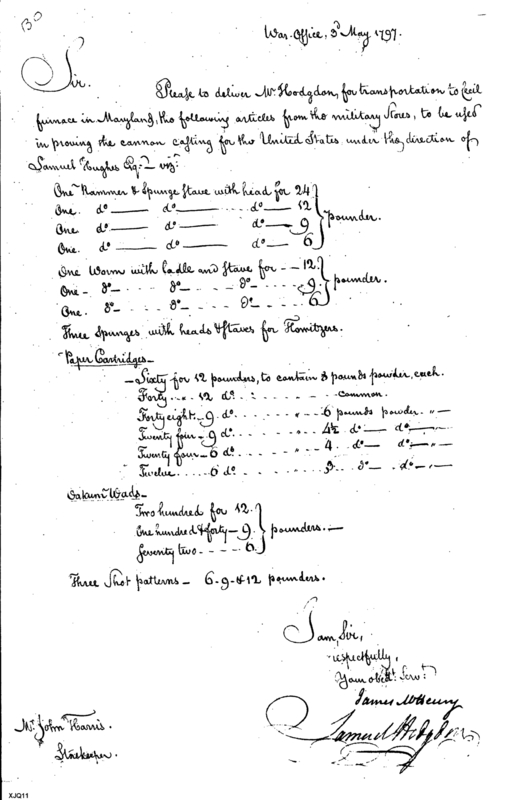 War-Office, 3d May 1797.
Sir.
Please to deliver Mr. Hodgdon, for transportation to Cecil
furnace in Mayland, the following articles from the military Stores, to be used
in proving the cannon casting for the United States under the direction of
Samuel Hughes Esqr. viz.
One Rammer & Spunge Stave with head for 24
One. do do do 12
One. do do do 9
One. do do do 6
pounder.
One Worm with Ladle and Stave for - - 12.
One - do do do 9.
One. do do do 6
pounder.
Three Spunges with heads & Staves for Howitzers.
Paper Cartridges -
- Sixty for 12 pounders, to contain 8 pounds powder, each.
Forty " 12 do. common.
Forty eight - 9 do. " 6 pounds powder - " -
Twenty four - 9 do. " 4½ do - do - " -
Twenty four - 6 do. " 4. do - do - " -
Twelve 6 do. " 3. do - do - " -
Oakum Wads -
Two hundred for 12.
One hundred & forty - 9.
Seventy two - - - - 6.
pounders. -
Three Shot patterns - 6-9-&12 pounders.
I am, Sir,
respectfully,
Your obedt. Servt.
James McHenry
Samuel Hodgdon
Mr. John Harris.
Storekeeper.
XJQ11